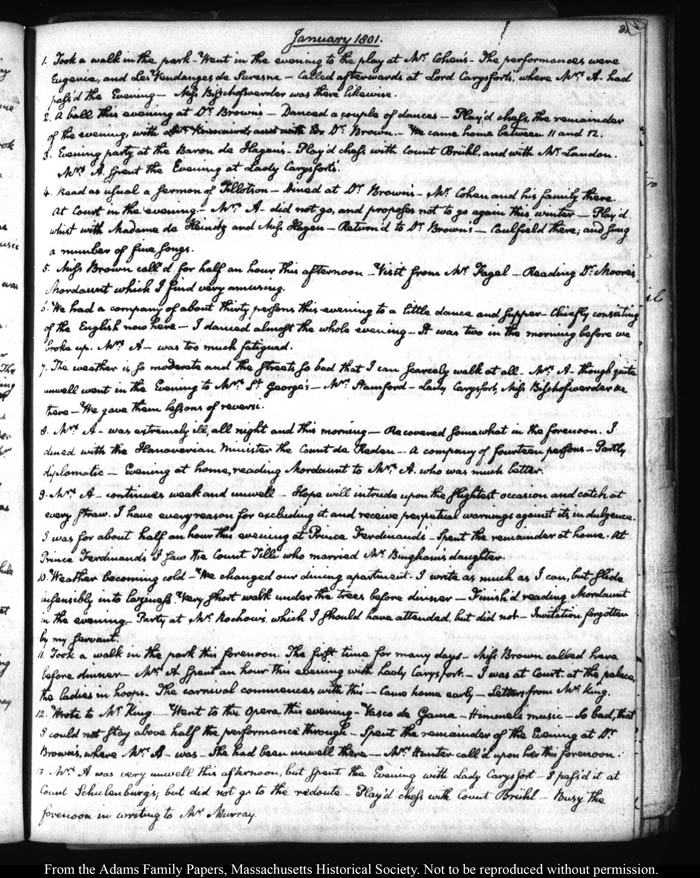 January 1801.
1. Took a walk in the park - Went in the evening to the play at Mr. Cohen's - The performances were
Eugenie, and Les Vendanges de Suresne - Called afterwards at Lord Carysfort's, where Mrs. A- had
pass'd the Evening - Miss Bischofswerder was there likewise.
2. A ball this evening at Dr. Brown's - Danced a couple of dances - Play'd chess, the remainder
of the evening, with Dr. Brown - We came home between 11 and 12.
3. Evening party at the Baron de Hagen's - Play'd chess with Count Brühl, and with Mr. Landon.
Mrs. A. spent the Evening at Lady Carysfort's.
4. Read as usual a sermon of Tillotson - Dined at Dr. Brown's - Mr. Cohen and his family there.
At Court in the evening - Mrs. A- did not go, and proposes not to go again this winter - Play'd
whist with Madame de and Miss Hagen - Return'd to Dr. Brown's - Caulfield there; and sung
a number of fine songs.
5. Miss Brown call'd for half an hour this afternoon - Visit from Mr. Tagel - Reading Dr. Moore's
Mordaunt which I find very amusing.
6. We had a company of about thirty persons this evening to a little dance and supper - Chiefly consisting
of the English now here - I danced almost the whole evening - It was two in the morning before we
broke up. Mrs. A- was too much fatigued.
7. The weather is so moderate and the streets so bad that I can scarcely walk at all - Mrs. A- though quite
unwell went in the Evening to Mrs. St. George's - Mrs. Stamford - Lady Carysfort, Miss Bischofswerder &c
there - We gave them lessons of reversi.
8. Mrs. A- was extremely ill, all night and this morning - Recovered somewhat in the forenoon. I
dined with the Hanoverian Minister the Count de Reden - A company of fourteen persons - Partly
diplomatic - Evening at home, reading Mordaunt to Mrs. A. who was much better.
9. Mrs. A- continues weak and unwell - Hope will intrude upon the slightest occasion and catch at
every straw. I have every reason for excluding it and receive perpetual warnings against its indulgence.
I was for about half an hour this evening at Prince Ferdinand's - Spent the remainder at home. At
Prince Ferdinand's I saw the Count Tilli who married Mr. Bingham's daughter.
10. Weather becoming cold - We changed our dining apartment - I write as much as I can, but slide
insensibly into laziness. Very short walk under the trees before dinner - Finish'd reading Mordaunt
in the evening. Party at Mr. Rochow's, which I should have attended, but did not - Invitation forgotten
by my servant.
11. Took a walk in the park this forenoon. The first time for many days - Miss Brown called here
before dinner - Mrs. A spent an hour this evening with Lady Carysfort - I was at Court at the palace,
the ladies in hoops. The carnival commences with this - Came home early - Letters from Mr. King.
12. Wrote to Mr. King. Went to the Opera this evening - Vasco de Gama - Himmel's music - So bad, that
I could not stay above half the performance through - Spent the remainder of the Evening at Dr.
Brown's, where Mrs. A- was - She had been unwell there - Mrs. Hunter call'd upon her this forenoon.
13. Mrs. A was very unwell this afternoon, but spent the Evening with Lady Carysfort - I pass'd it at
Count Schulenburg's, but did not go to the redoute - Play'd chess with Count Brühl - Busy the
forenoon in writing to Mr. Murray
From the Adams Family Papers, Massachusetts Historical Society. Not to be reproduced without permission.